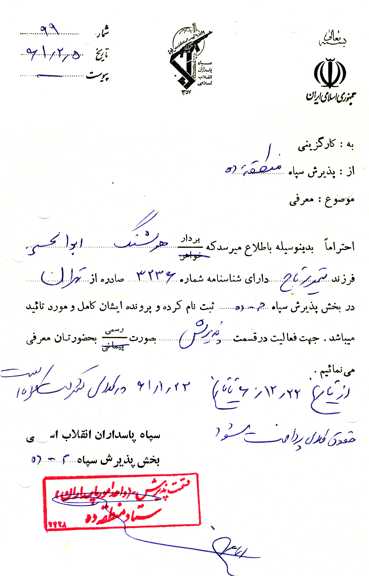 بسمه تعالی
شمار ۹۹
تاریخ ۶۱/۲/۵
پیوست
سپاه
پاسداران
انقلاب
اسلامی
۱۳۵۷
جمهوری اسلامی ایران
به : کارگزینی
از : پذیرش سپاه منطقه ده
موضوع : معرفی
احتراماً بدینوسیله باطلاع میرسد که برادر خواهر هوشنگ ابوالحسنی
فرزند دارای شناسنامه شماره ۳۲۳۶ صادره از تهران
در بخش پذیرش سپاه ۲-ده ثبت نام کرده و پرونده ایشان کامل و مورد تائید
میباشد . جهت فعالیت در قسمت پذیرش بصورت رسمی پیمانی بحضورتان معرفی
می نمائیم .
از تاریخ ۶۰/۱۲/۲۲ تا تاریخ ۶۱/۱/۲۳ در
حقوق پرداخت میشود
سپاه پاسداران انقلاب
بخش پذیرش سپاه ۲-ده
قسمت پذیرش
ستاد منطقه ده